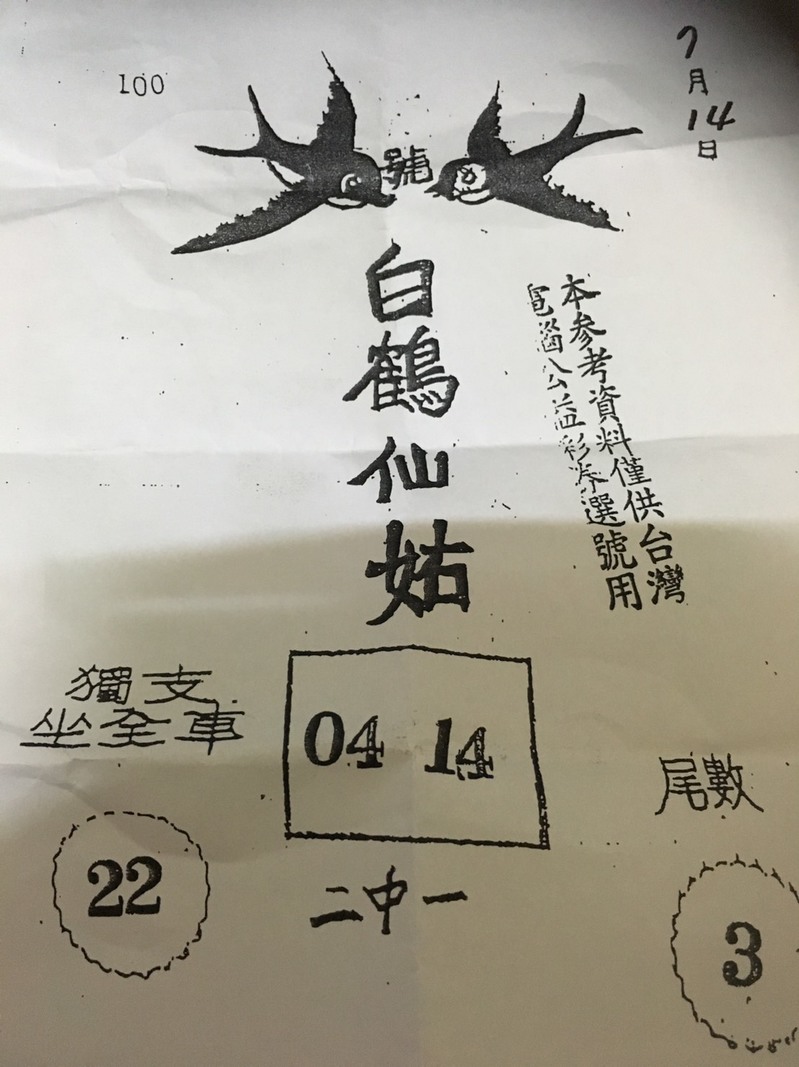 100
7月14日
號
白鶴仙姑
本參考資料僅供台灣
電腦公益彩券選號用
獨支
坐全車
22
04 14
二中一
尾數
3